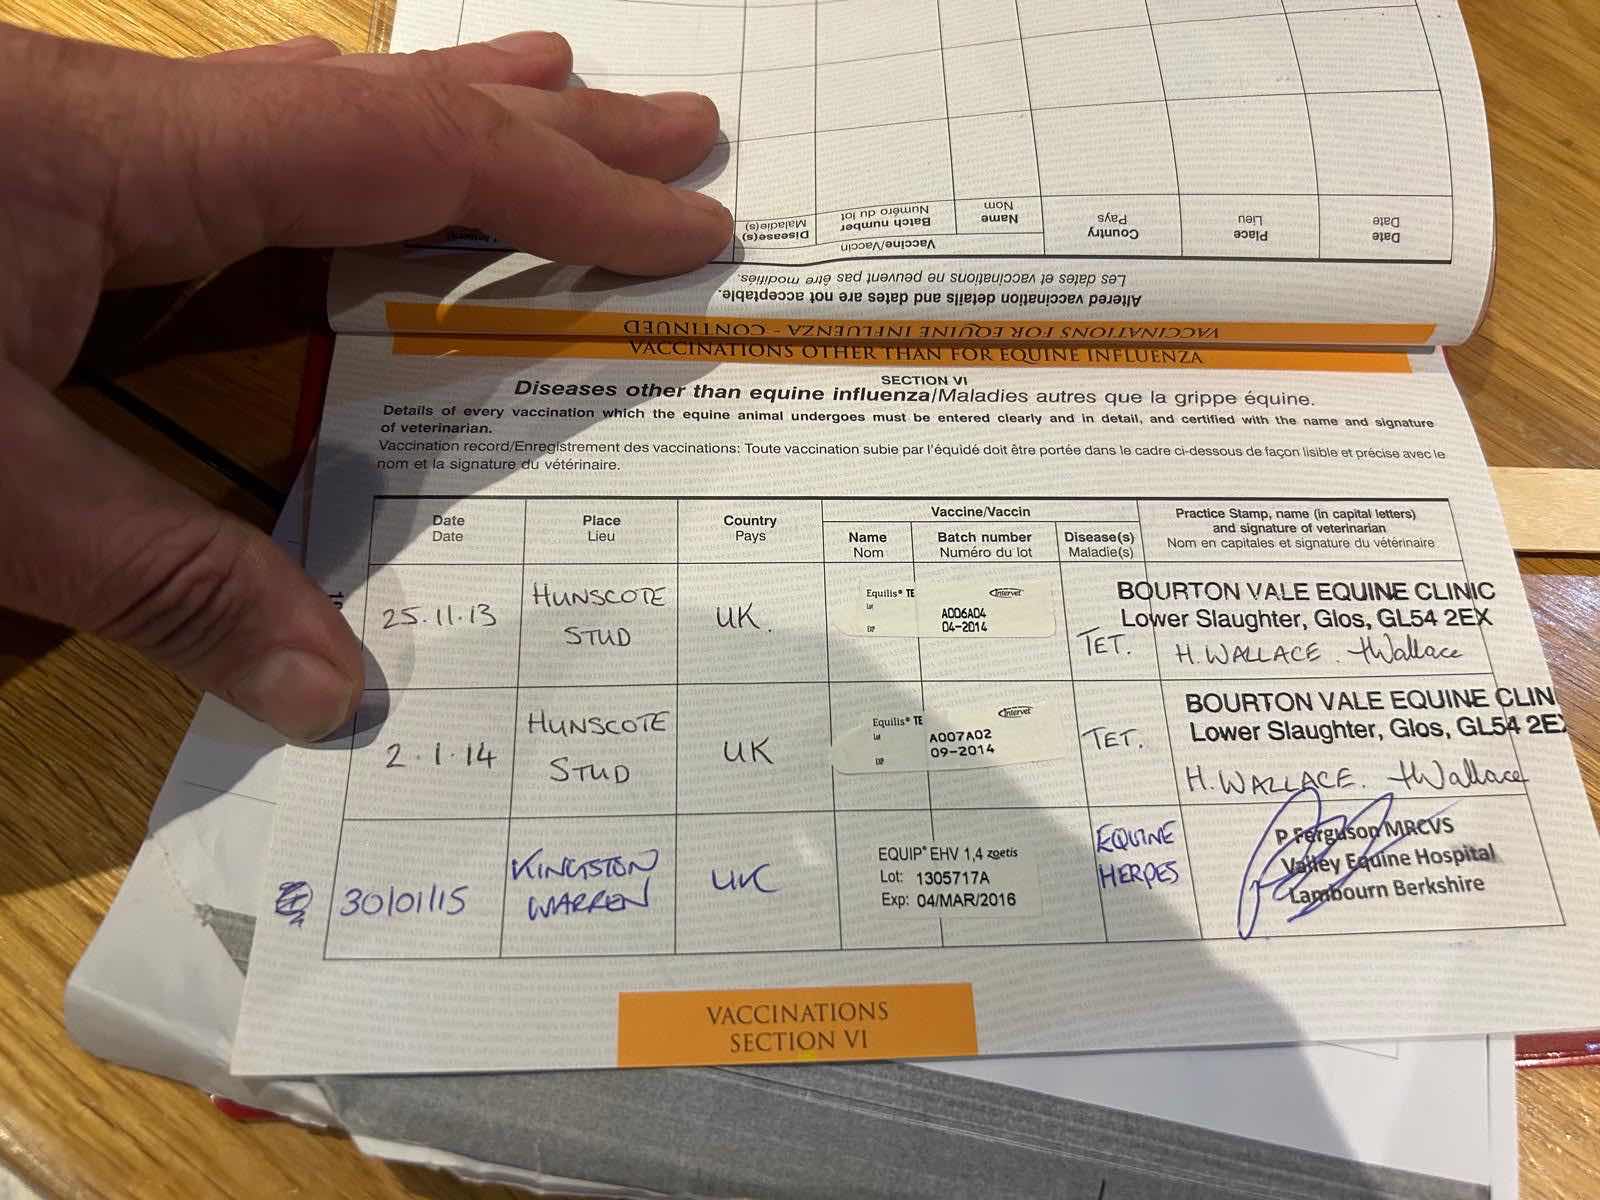 Date Place Country Vaccine/Vaccin Disease(s)
Date Lieu Pays Name Batch number Maladie(s)
Nom Numéro du lot
Altered vaccination details and dates are not acceptable.
Les dates et vaccinations ne peuvent pas être modifiées.
VACCINATIONS FOR EQUINE INFLUENZA - CONTINUED
VACCINATIONS OTHER THAN FOR EQUINE INFLUENZA
SECTION VI
Diseases other than equine influenza/Maladies autres que la grippe équine.
Details of every vaccination which the equine animal undergoes must be entered clearly and in detail, and certified with the name and signature
of veterinarian.
Vaccination record/Enregistrement des vaccinations: Toute vaccination subie par l'équidé doit être portée dans le cadre ci-dessous de façon lisible et précise avec le
nom et la signature du vétérinaire.
Date
Date
Place
Lieu
Country
Pays
Vaccine/Vaccin
Name
Nom
Batch number
Numéro du lot
Disease(s)
Maladie(s)
Practice Stamp, name (in capital letters)
and signature of veterinarian
Nom en capitales et signature du vétérinaire
25.11.13
HUNSCOTE
STUD
UK.
Equilis® TE
Intervet
Lot
A006A04
EXP
04-2014
TET.
BOURTON VALE EQUINE CLINIC
Lower Slaughter, Glos, GL54 2EX
H. WALLACE. HWallace
2.1.14
HUNSCOTE
STUD
UK
Equilis® TE
Intervet
Lot
A007A02
EXP
09-2014
TET.
BOURTON VALE EQUINE CLIN
Lower Slaughter, Glos, GL54 2EX
H. WALLACE. HWallace
30/01/15
KINGSTON
WARREN
UK
EQUIP® EHV 1,4 zoetis
Lot: 1305717A
Exp: 04/MAR/2016
EQUINE
HERPES
P Ferguson MRCVS
Valley Equine Hospital
Lambourn Berkshire
VACCINATIONS
SECTION VI